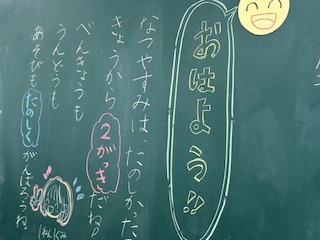 おはよう!!
なつやすみは、たのしかった
きょうから2がっきだね♪
べんきょうも
うんどうも
あそびも、たのしくがんばろうね
1ねん1くみ